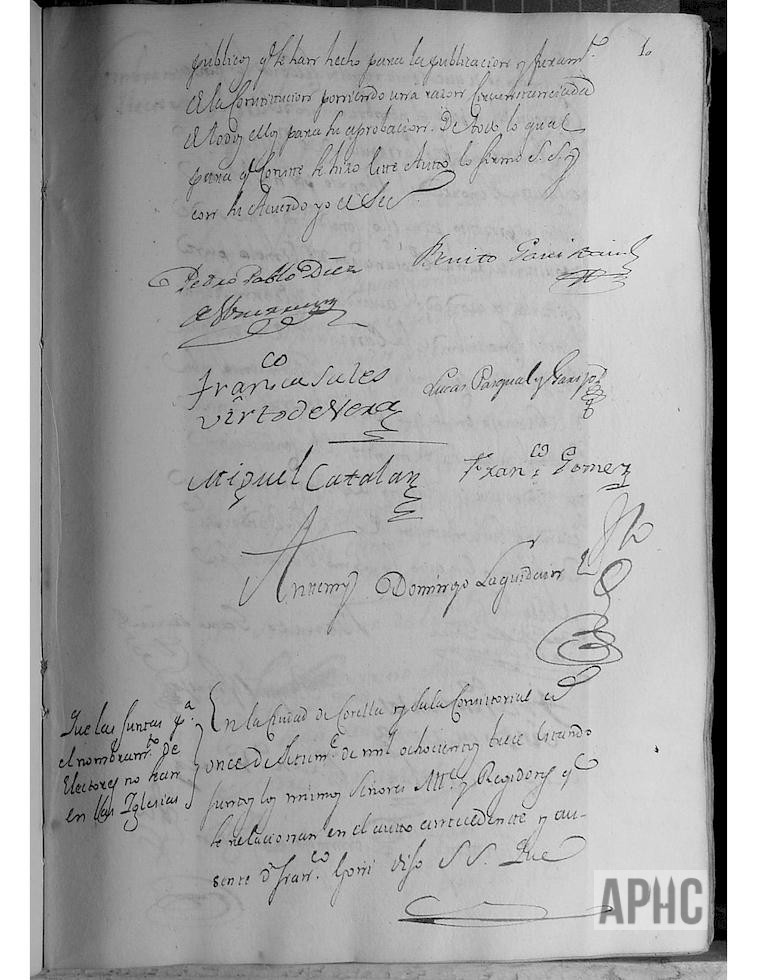 10
publicos q.e se han hecho para la publicacion y juram.to
de la Constitucion poniendo una razon Circunstanciada
de todos ellos para su aprobacion. De todo lo qual
para q.e Conste se hizo este Auto lo firmo S. S.
con su Acuerdo yo el Sec.
Pedro Pablo Diez
Benito
Fran.co Sales
Virto de Vera
Lucas Pasqual y
Miguel Catalan
Fran.co Gomez
Antemi Domingo Laguidain
Que las Juntas p.a
el nombram.to de
Electores no sean
en las Iglesias
En la Ciudad de Corella y Sala Consistorial a
once de Setiem.e de mil ochocientos trece Estando
juntos los mismos Señores Alc.e y Regidores q.e
se relacionan en el auto antecedente y au-
sente Dn Fran.co Goñi dijo S. S. Que
APHC